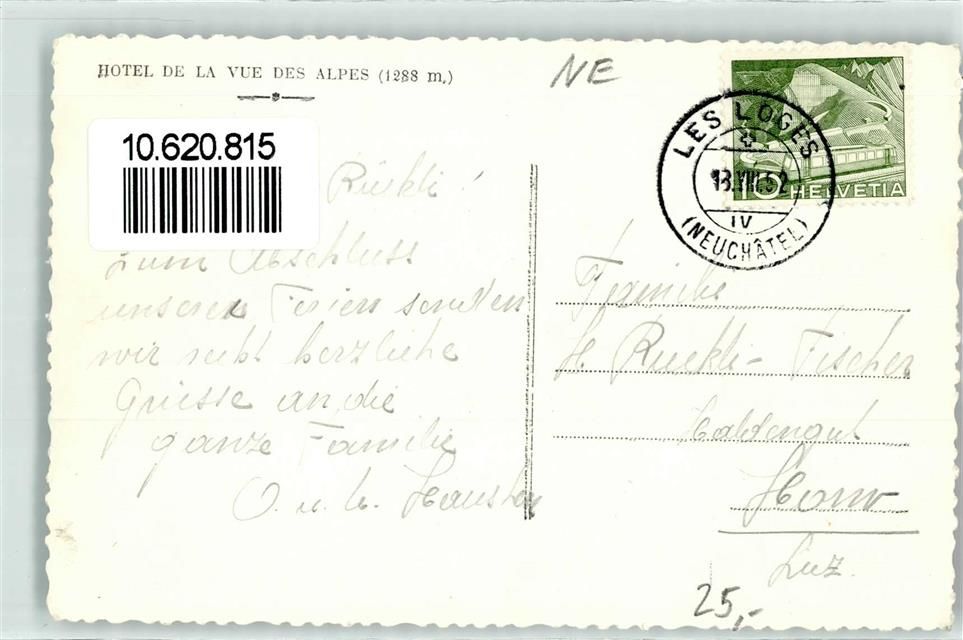 HOTEL DE LA VUE DES ALPES (1288 m.)
NE
10.620.815
LES LOGES
13.VIII.52
IV
(NEUCHÂTEL)
10 HELVETIA
Rüekli!
Zum Abschluss
unserer Ferien senden
wir recht herzliche
Grüsse an die
ganze Familie
O. u. h.
Familie
H. Rüekli-Fischer
Haldengut
Horw
Luz.
25,-